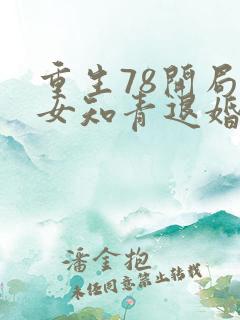 重生78开局
女知青退婚
潘金抱
未经同意禁止转载